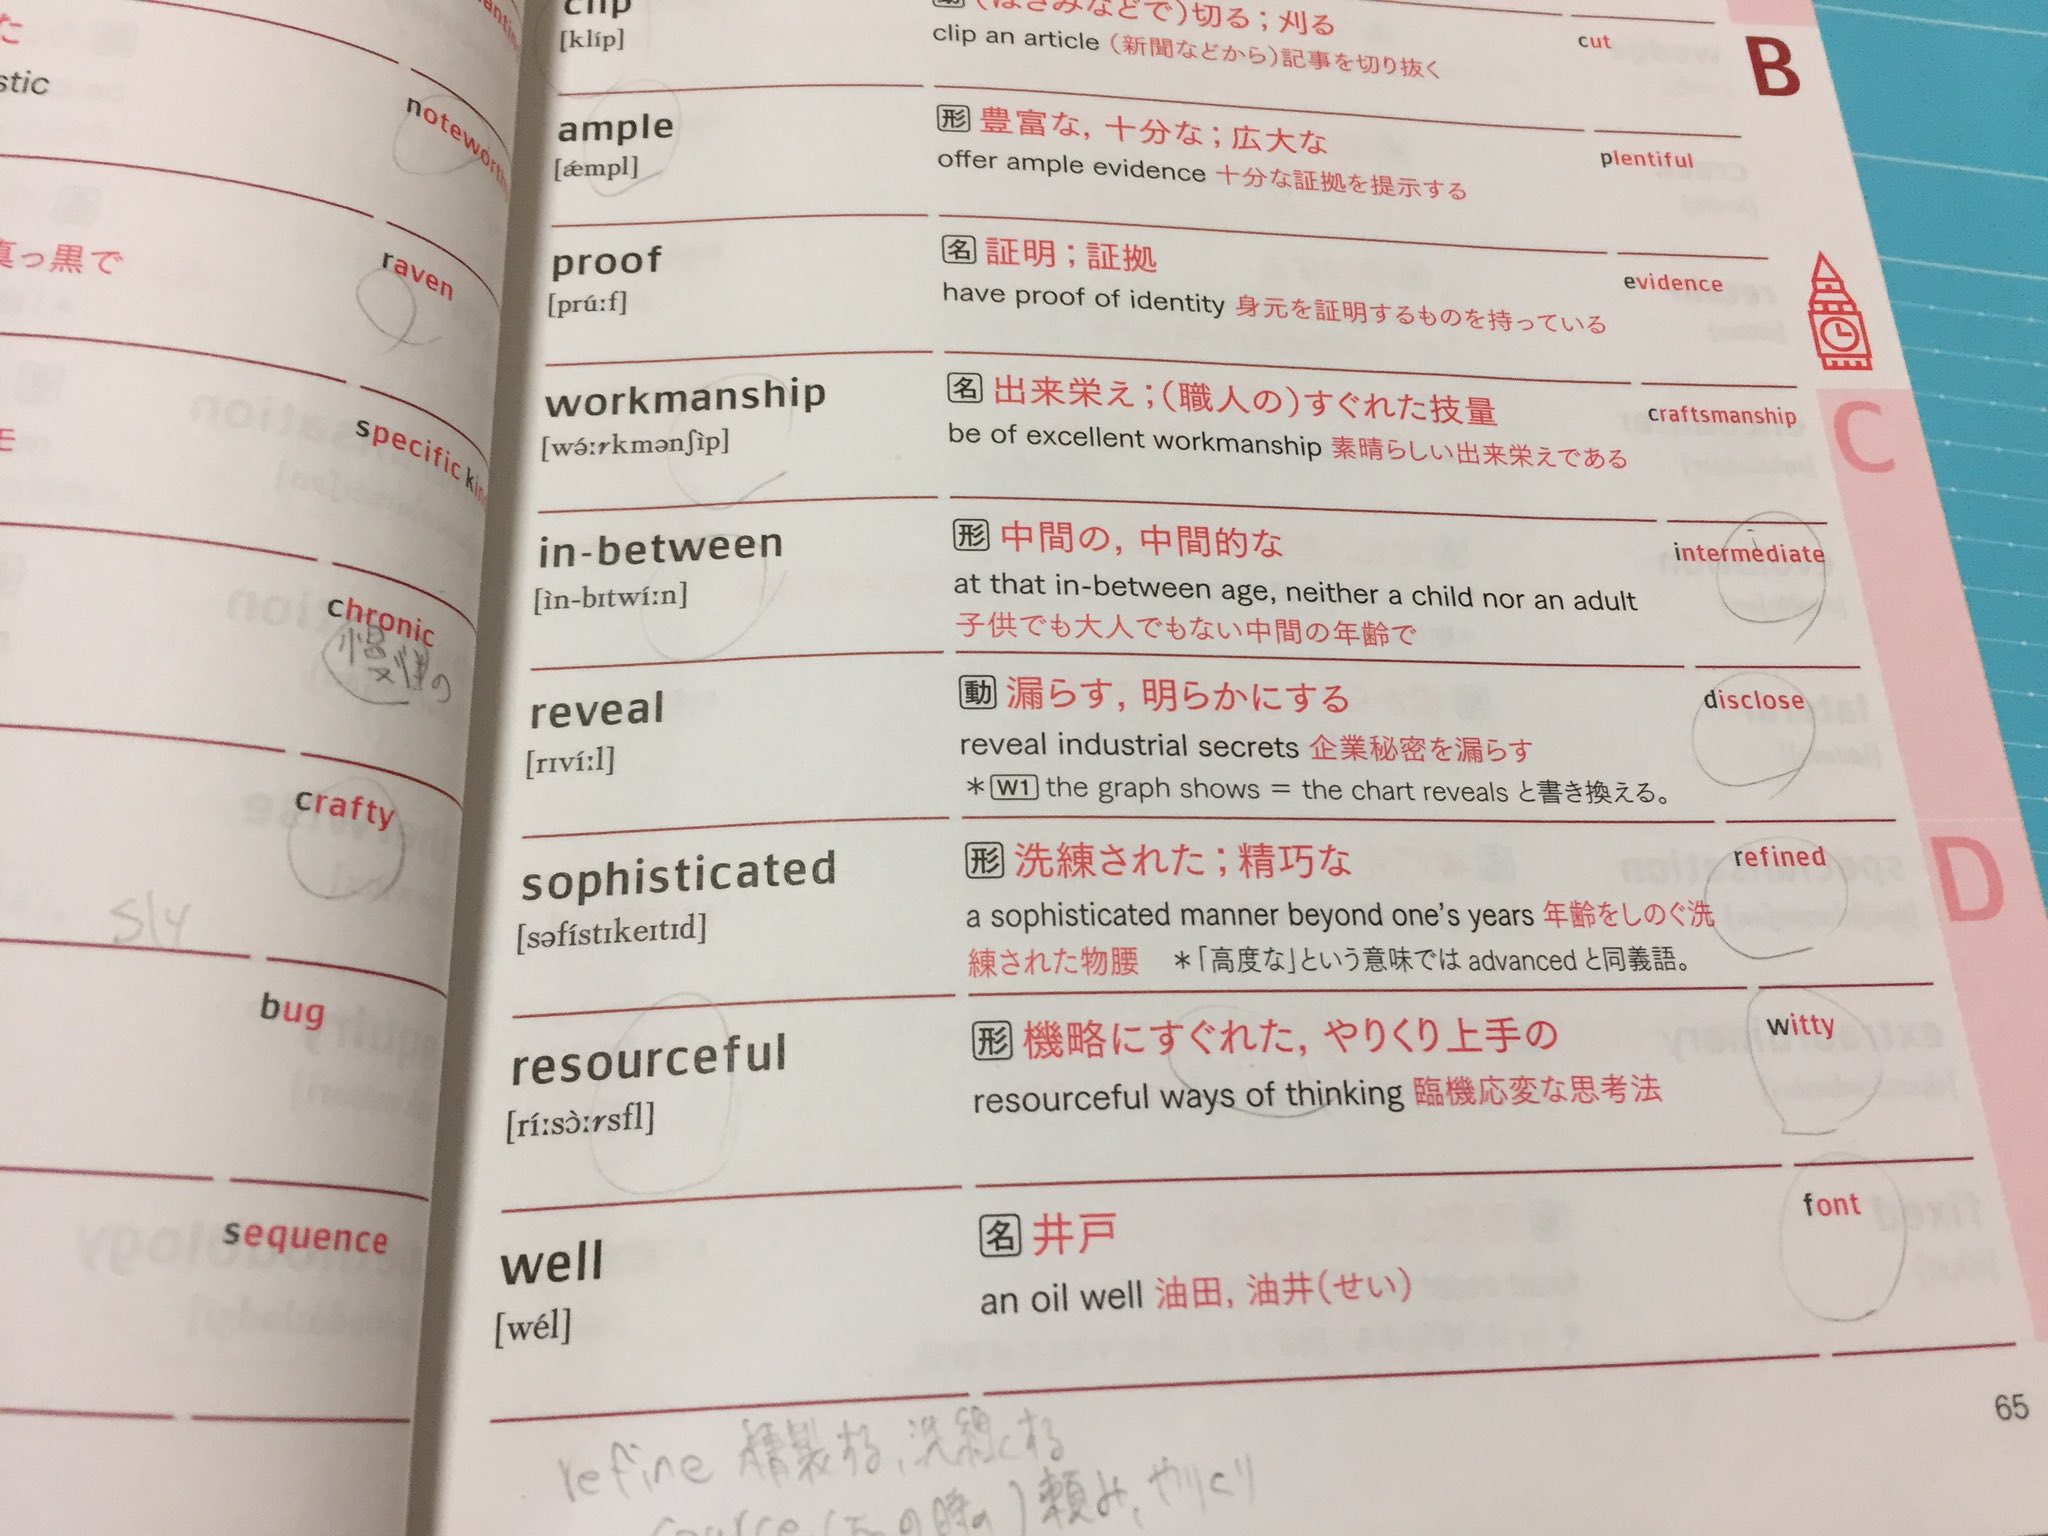 た
stic
noteworthy
真っ黒で
raven
specific
chronic
慢性の
crafty
sly
bug
sequence
clip
[klíp]
切る；刈る
clip an article（新聞などから）記事を切り抜く
cut
B
ample
[ǽmpl]
形 豊富な，十分な；広大な
offer ample evidence 十分な証拠を提示する
plentiful
proof
[prúːf]
名 証明；証拠
have proof of identity 身元を証明するものを持っている
evidence
workmanship
[wə́ːrkmənʃìp]
名 出来栄え；（職人の）すぐれた技量
be of excellent workmanship 素晴らしい出来栄えである
craftsmanship
C
in-between
[ìn-bɪtwíːn]
形 中間の，中間的な
at that in-between age, neither a child nor an adult
子供でも大人でもない中間の年齢で
intermediate
reveal
[rɪvíːl]
動 漏らす，明らかにする
reveal industrial secrets 企業秘密を漏らす
＊W1 the graph shows ＝ the chart reveals と書き換える。
disclose
sophisticated
[səfístɪkeɪtɪd]
形 洗練された；精巧な
a sophisticated manner beyond one's years 年齢をしのぐ洗
練された物腰　＊「高度な」という意味では advanced と同義語。
refined
D
resourceful
[ríːsɔ̀ːrsfl]
形 機略にすぐれた，やりくり上手の
resourceful ways of thinking 臨機応変な思考法
witty
well
[wél]
名 井戸
an oil well 油田，油井（せい）
font
65
refine 精製する，洗練する
の時の）頼み，やりくり